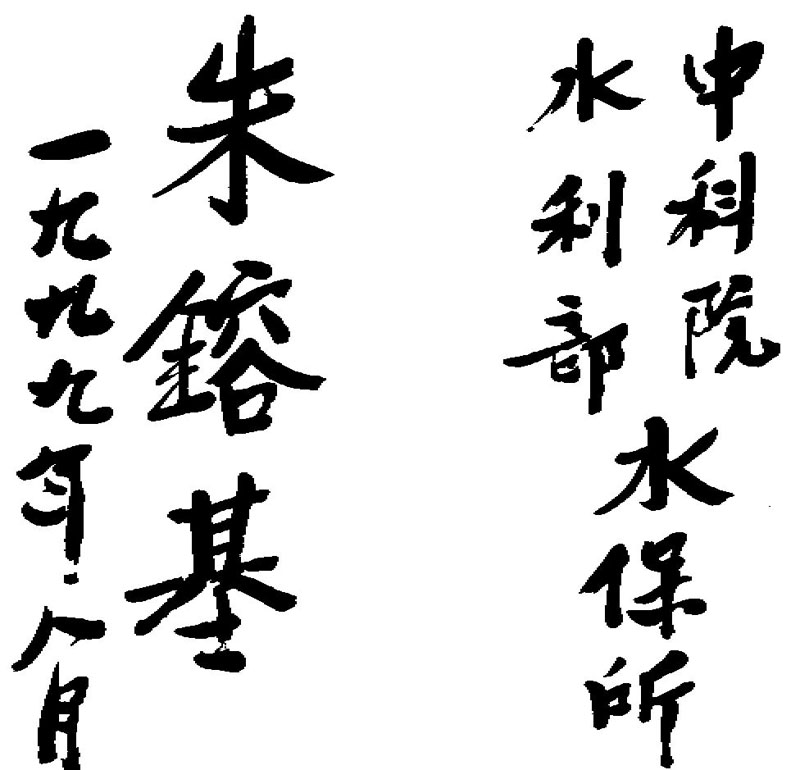 中科院
水利部
水保所
朱鎔基
一九九九年八月